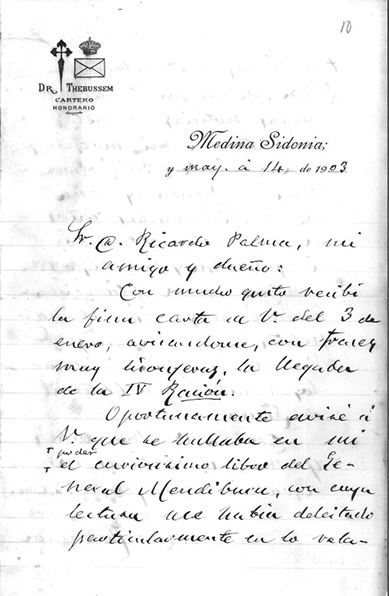 10
DR. THEBUSSEM
CARTERO
HONORARIO
Medina Sidonia;
y may. à 14, de 1903
Sr. D. Ricardo Palma, mi
amigo y dueño:
Con mucho gusto recibí
la fina carta de V. del 3 de
enero, avisandome, con frases
muy lisonjeras, la llegada
de la IV Ración.
Oportunamente avisé á
V. que se hallaba en mi
poder
el curiosisimo libro del Ge-
neral Mendiburu, con cuya
lectura me habia deleitado
particularmente en lo rela-